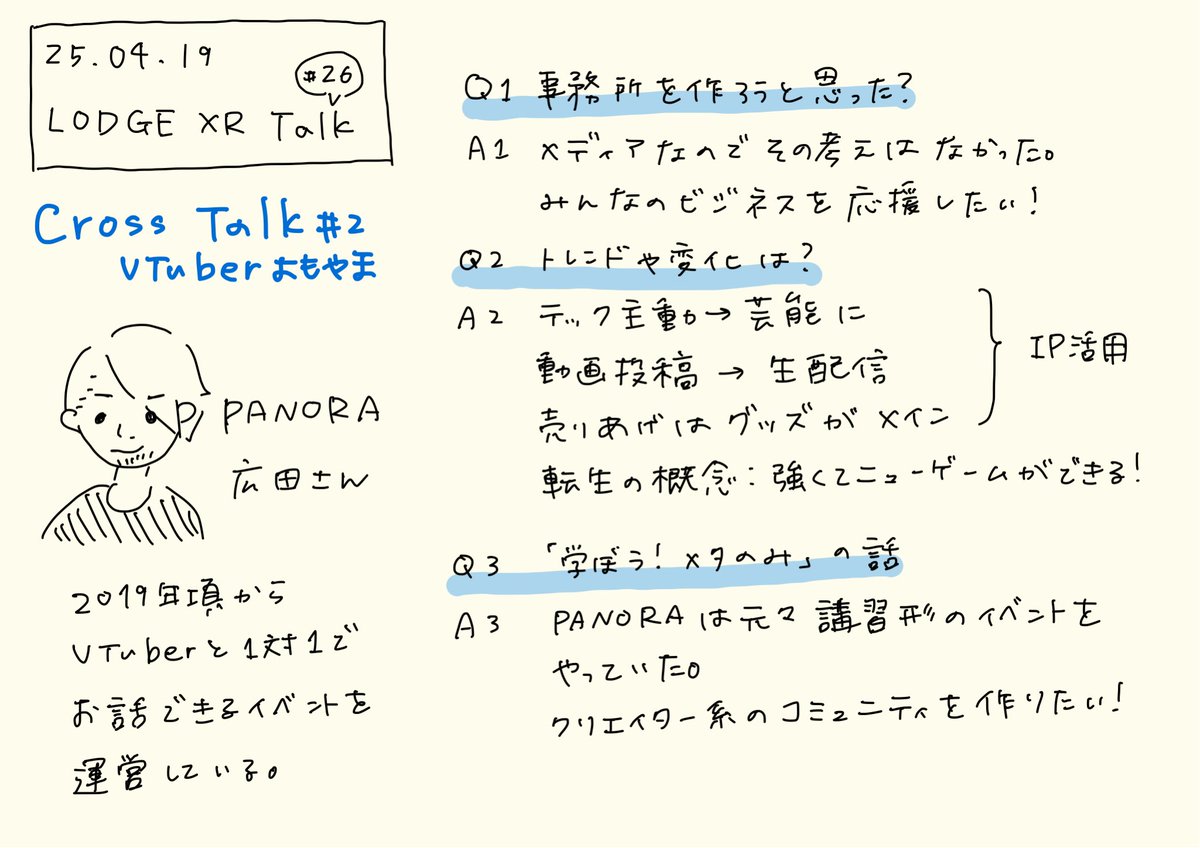 25.04.19
#26
LODGE XR Talk
Cross Talk #2
VTuberよもやま
P
PANORA
広田さん
2019年頃から
VTuberと1対1で
お話できるイベントを
運営している。
Q1 事務所を作ろうと思った?
A1 メディアなのでその考えはなかった。
みんなのビジネスを応援したい!
Q2 トレンドや変化は?
A2 テック主動→芸能に
動画投稿→生配信
売りあげはグッズがメイン
IP活用
転生の概念:強くてニューゲームができる!
Q3 「学ぼう!メタのみ」の話
A3 PANORAは元々講習形のイベントを
やっていた。
クリエイター系のコミュニティを作りたい!